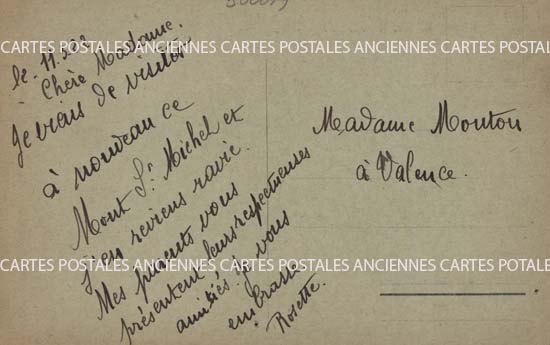 CARTES POSTALES ANCIENNES CARTES POSTALES ANCIENNES CARTES POSTALES
le 11
Chère Madame.
Je viens de visiter
à nouveau ce
Mont St Michel et
j'en reviens ravie.
Mes parents vous
présentent leurs respectueuses
amitiés. je vous
embrasse
Rosette.
Madame Mouton
à Valence.
CARTES POSTALES ANCIENNES CARTES POSTALES ANCIENNES CARTES POTALES